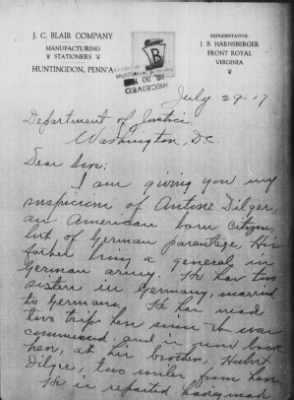 J. C. BLAIR COMPANY
MANUFACTURING
STATIONERS
HUNTINGDON, PENN'A
REPRESENTATIVE
J. B. HARNSBERGER
FRONT ROYAL
VIRGINIA
B
RECEIVED
July 29-17
Department of Justice
Washington, D.C
Dear Sirs:
I am giving you my
suspicion of Antone Dilger,
an American born citizen,
but of German parentage, His
father being a general in
German army. He has two
sisters in Germany, married
to Germans, He has made
two trips here since the war
commenced, and is now back
here, at his brother, Hubert
Dilger, two miles from here
He is reported